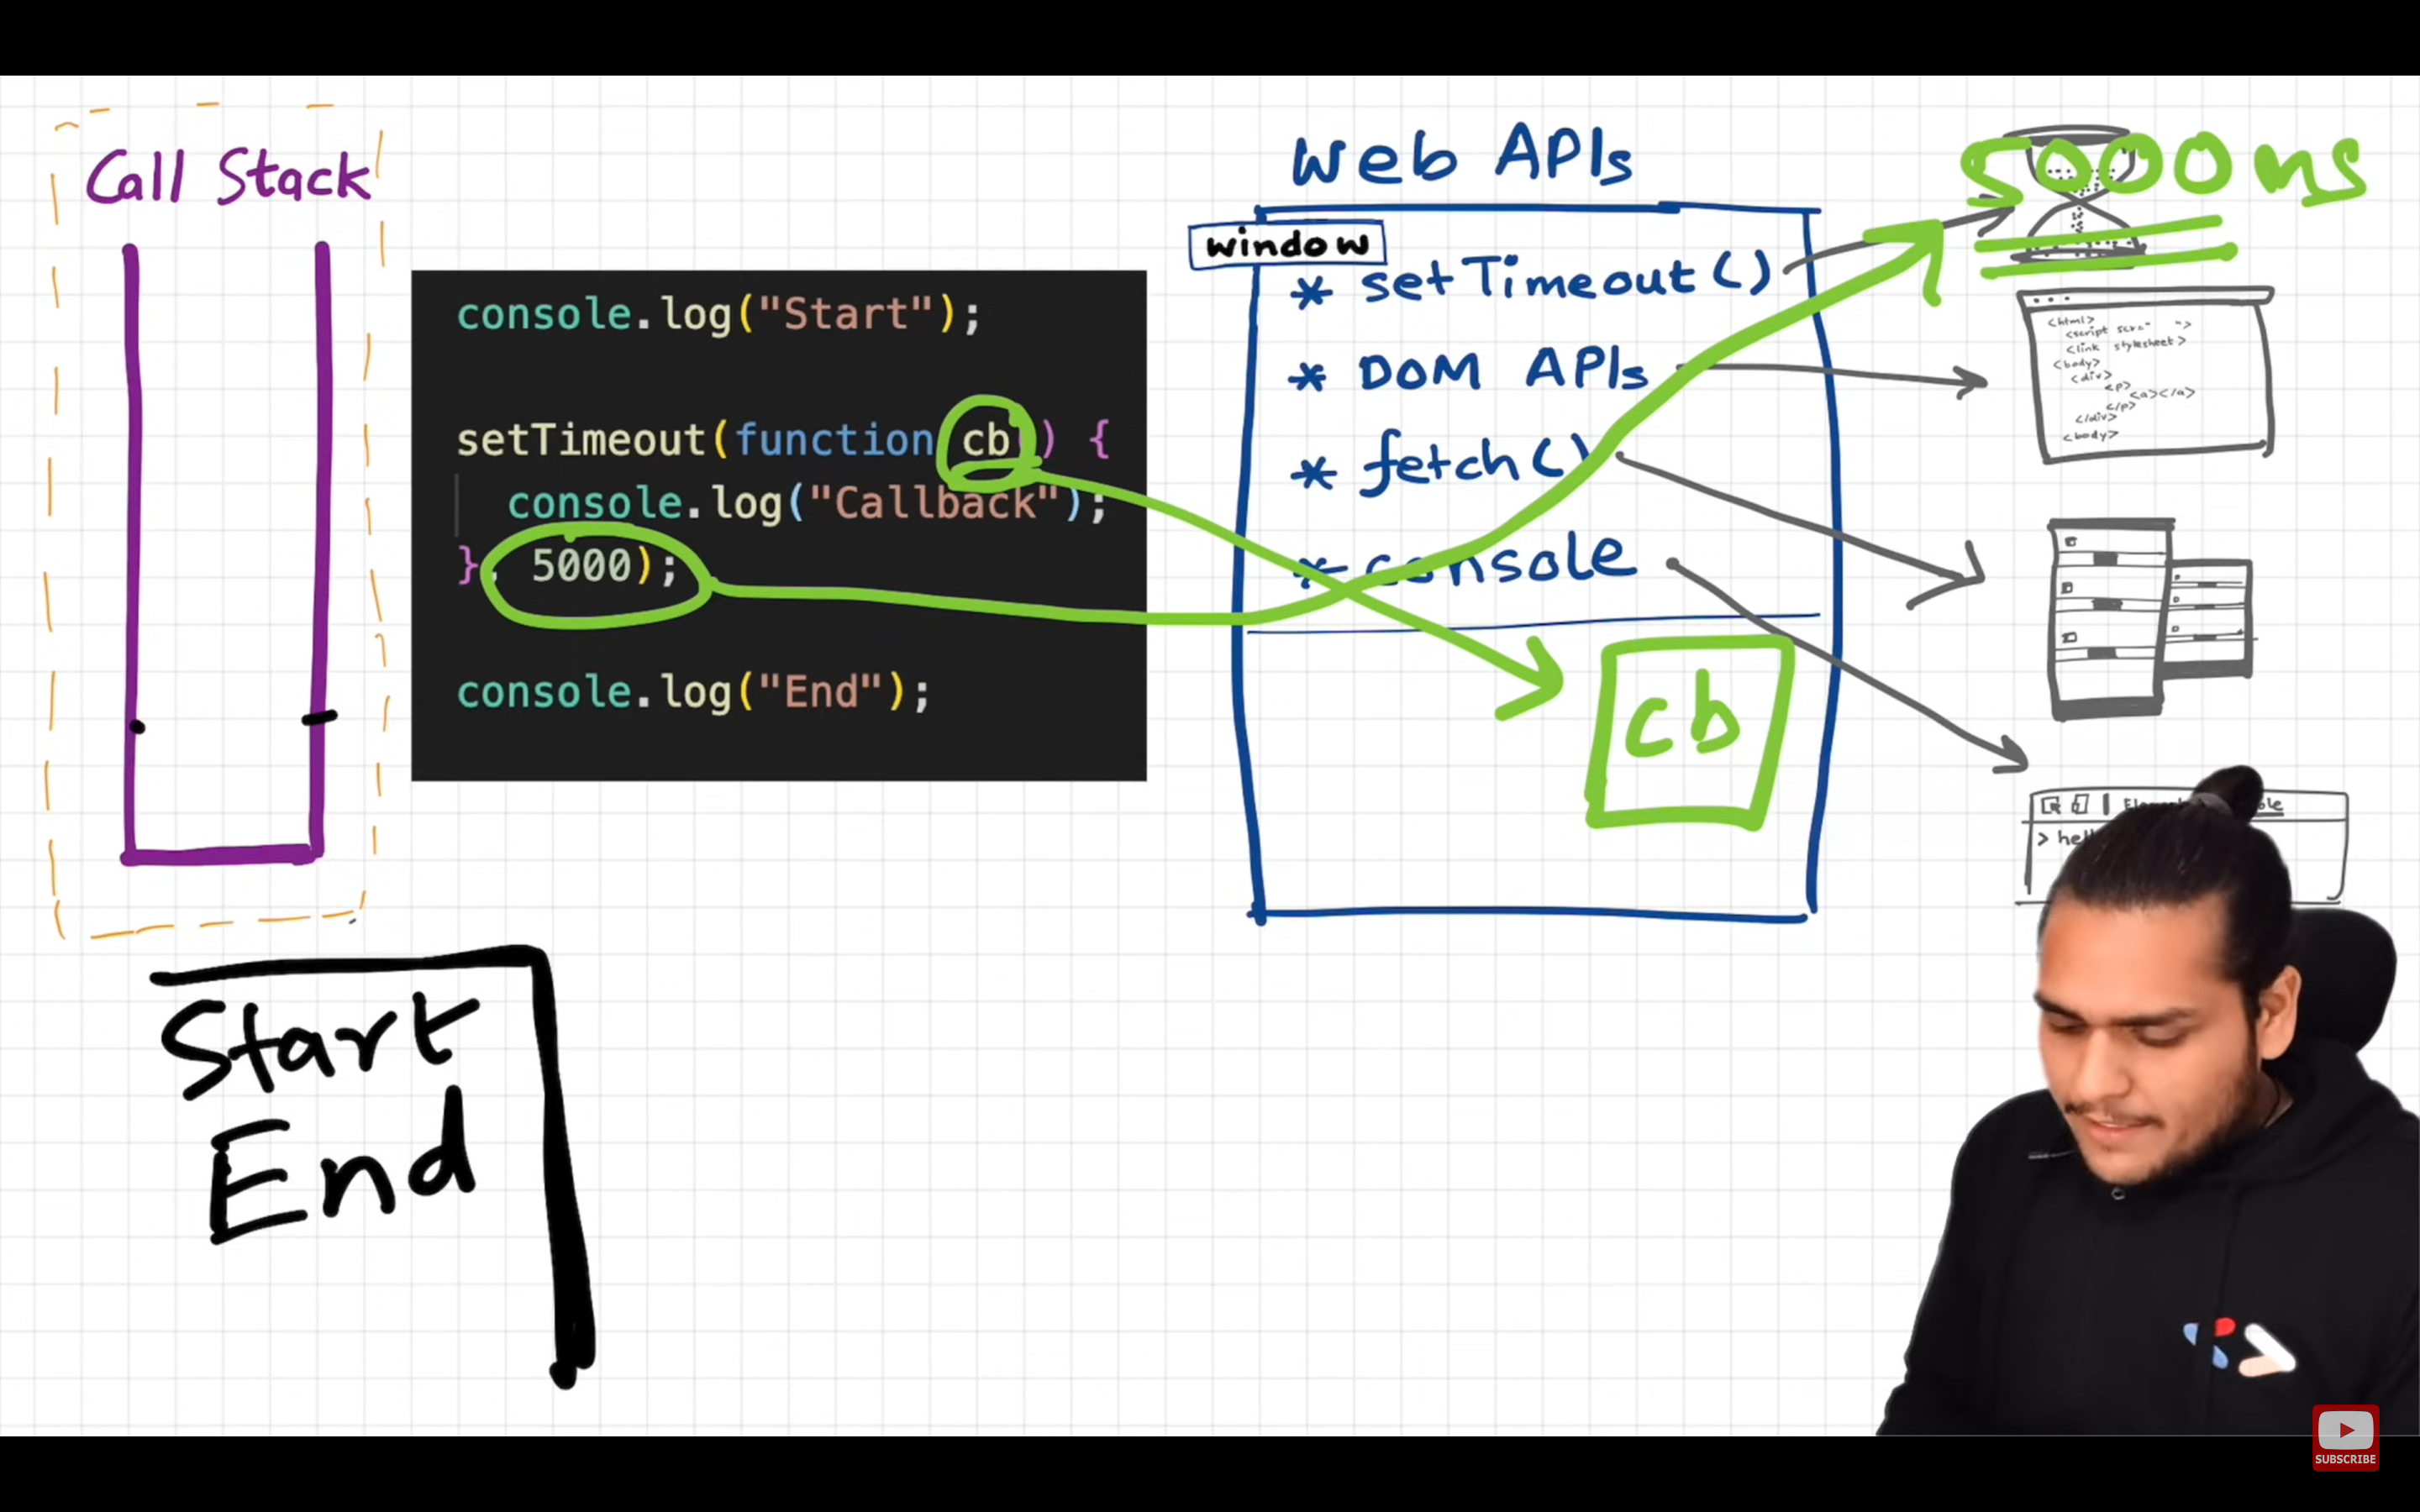 Call Stack
console.log("Start");
setTimeout(function cb() {
console.log("Callback");
}, 5000);
console.log("End");
Start
End
Web APIs
window
* setTimeout()
* DOM APIs
* fetch()
* console
cb
5000ms
<html>
<script scr=" ">
<link stylesheet>
<body>
<div>
<p>
<a></a>
</p>
</div>
<body>
>
SUBSCRIBE